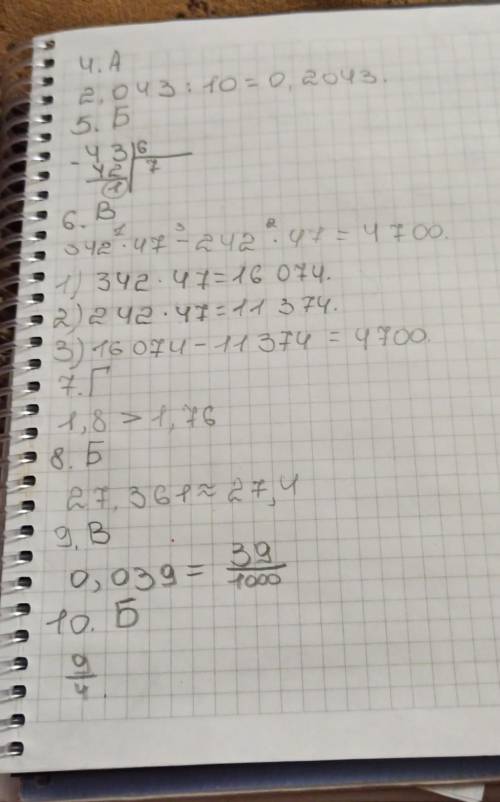 4. А
2,043 : 10 = 0,2043.
5. Б
- 43 6
42 7
1
6. В
1 3 2
342 · 47 - 242 · 47 = 4700.
1) 342 · 47 = 16 074.
2) 242 · 47 = 11 374.
3) 16 074 - 11 374 = 4700.
7. Г
1,8 > 1,76
8. Б
27,361 ≈ 27,4
9. В
0,039 = 39/1000
10. Б
9/4